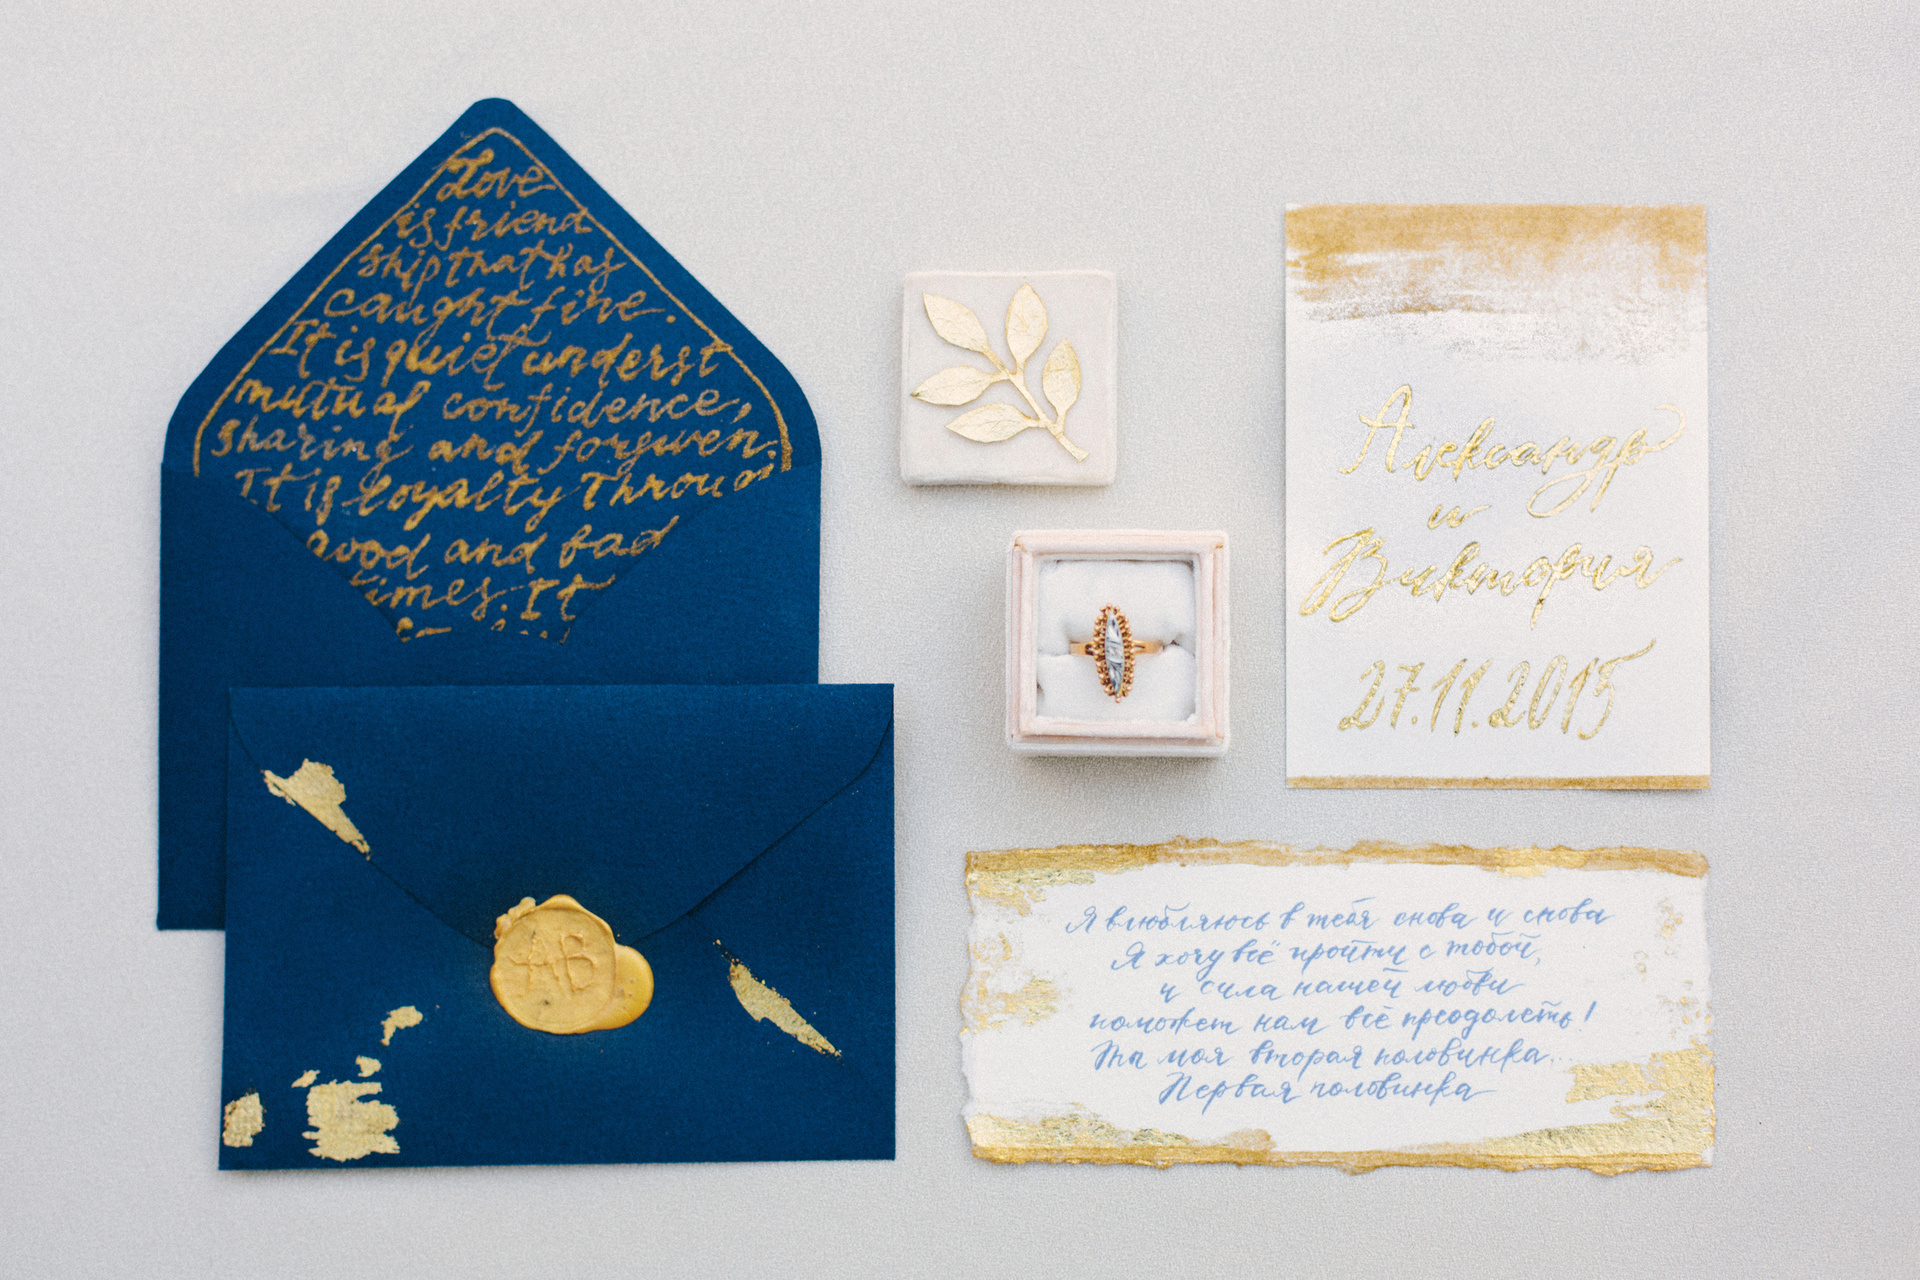 Love
is friend
ship that has
caught fire.
It is quiet underst
mutual confidence,
sharing and forgiven.
It is loyalty Throu
good and bad
times. It
AB
Александр
и
Виктория
27.11.2015
Я влюбляюсь в тебя снова и снова
Я хочу всё пройти с тобой,
и сила нашей любви
поможет нам всё преодолеть!
Ты моя вторая половинка...
Первая половинка